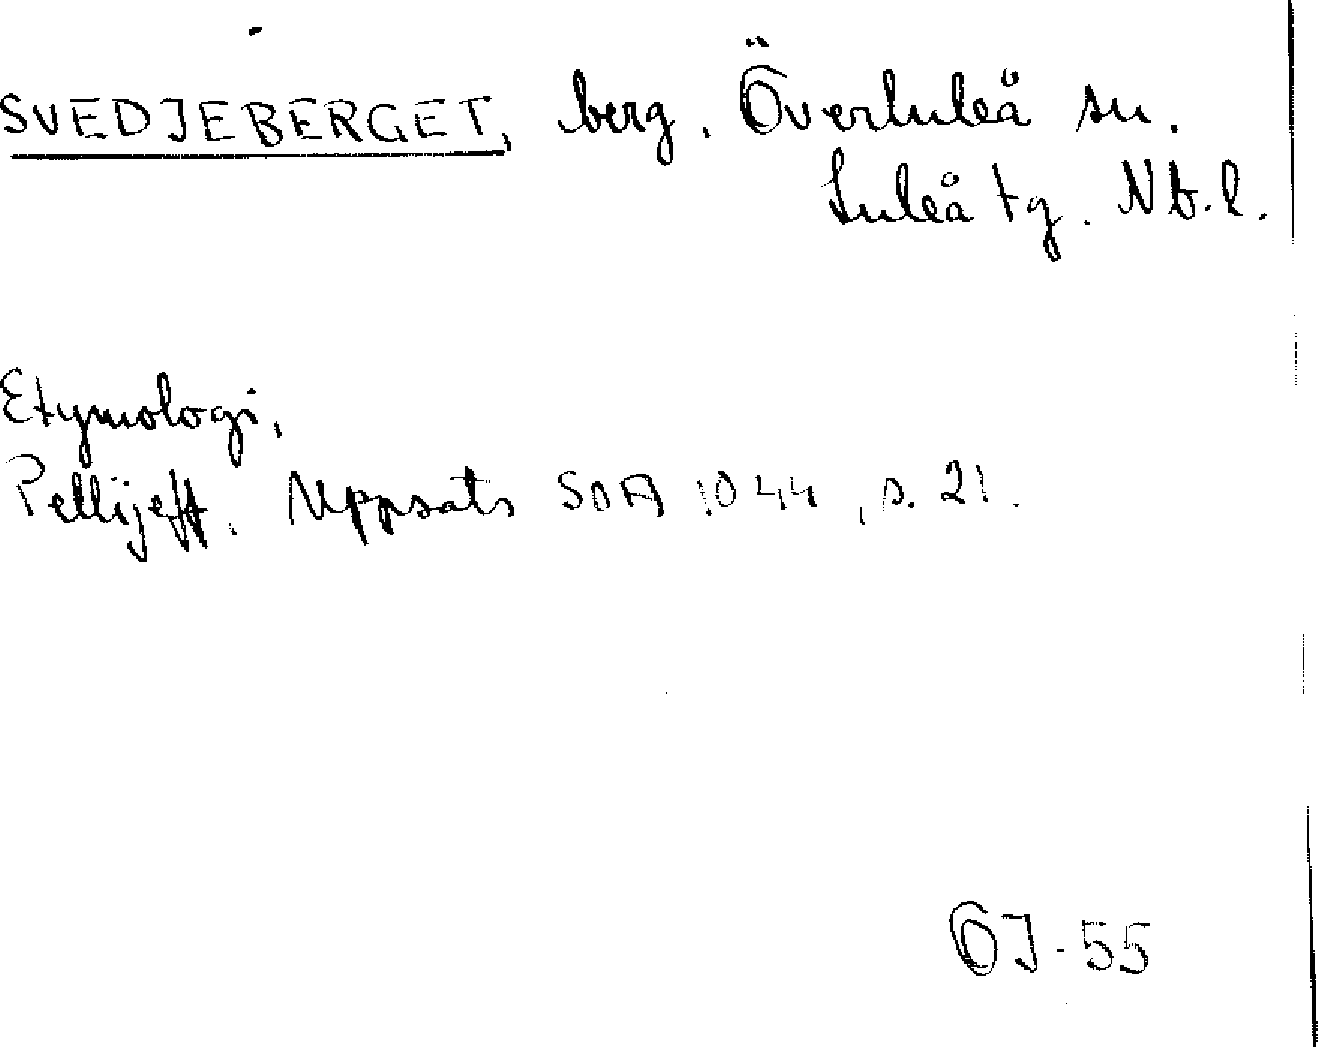 SVEDJEBERGET, berg. Överluleå sn.
Luleå tg. Nb. l.
Etymologi,
Pellijeff. Uppsats SOA 1044, s. 21.
OJ-55